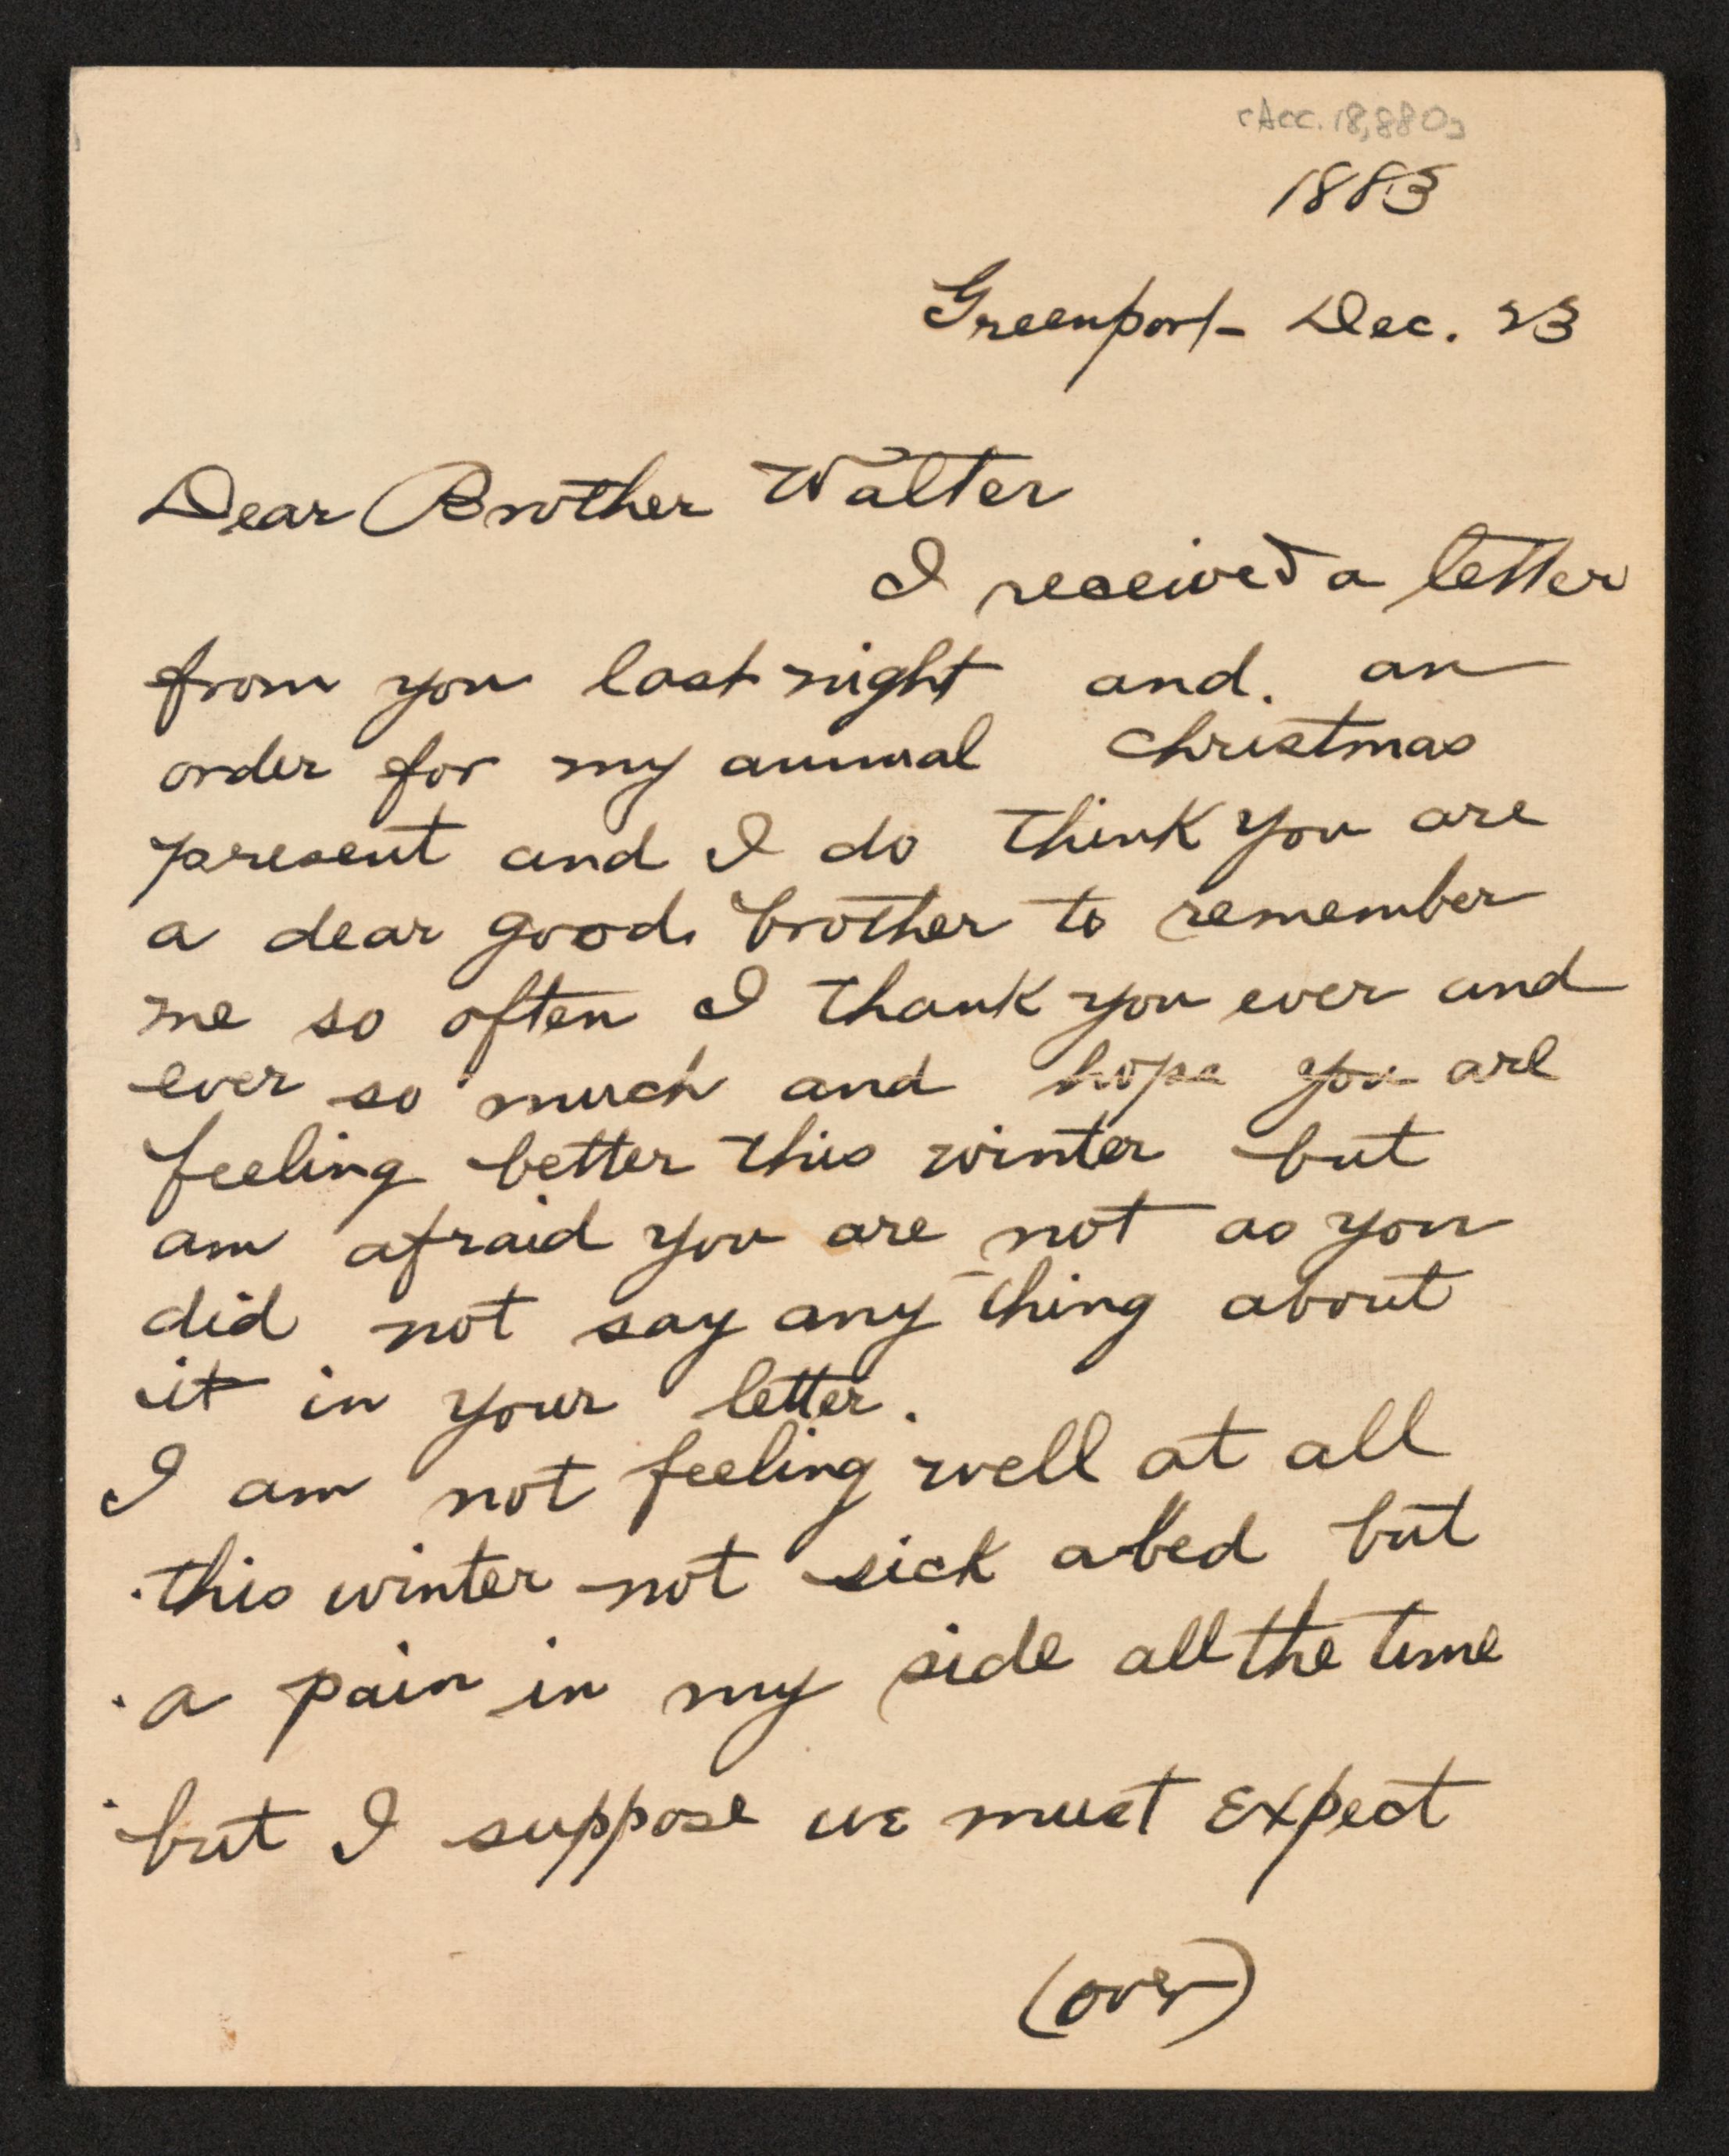 [Acc. 18,880]
1883
Greenport - Dec. 23
Dear Brother Walter
I received a letter
from you last night and. an
order for my annual Christmas
present and I do think you are
a dear good brother to remember
me so often I thank you ever and
ever so much and hope you are
feeling better this winter but
am afraid you are not as you
did not say any thing about
it in your letter.
I am not feeling well at all
this winter not sick abed but
a pain in my side all the time
but I suppose we must expect
(over)